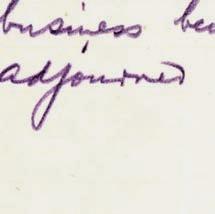 business be
adjourned